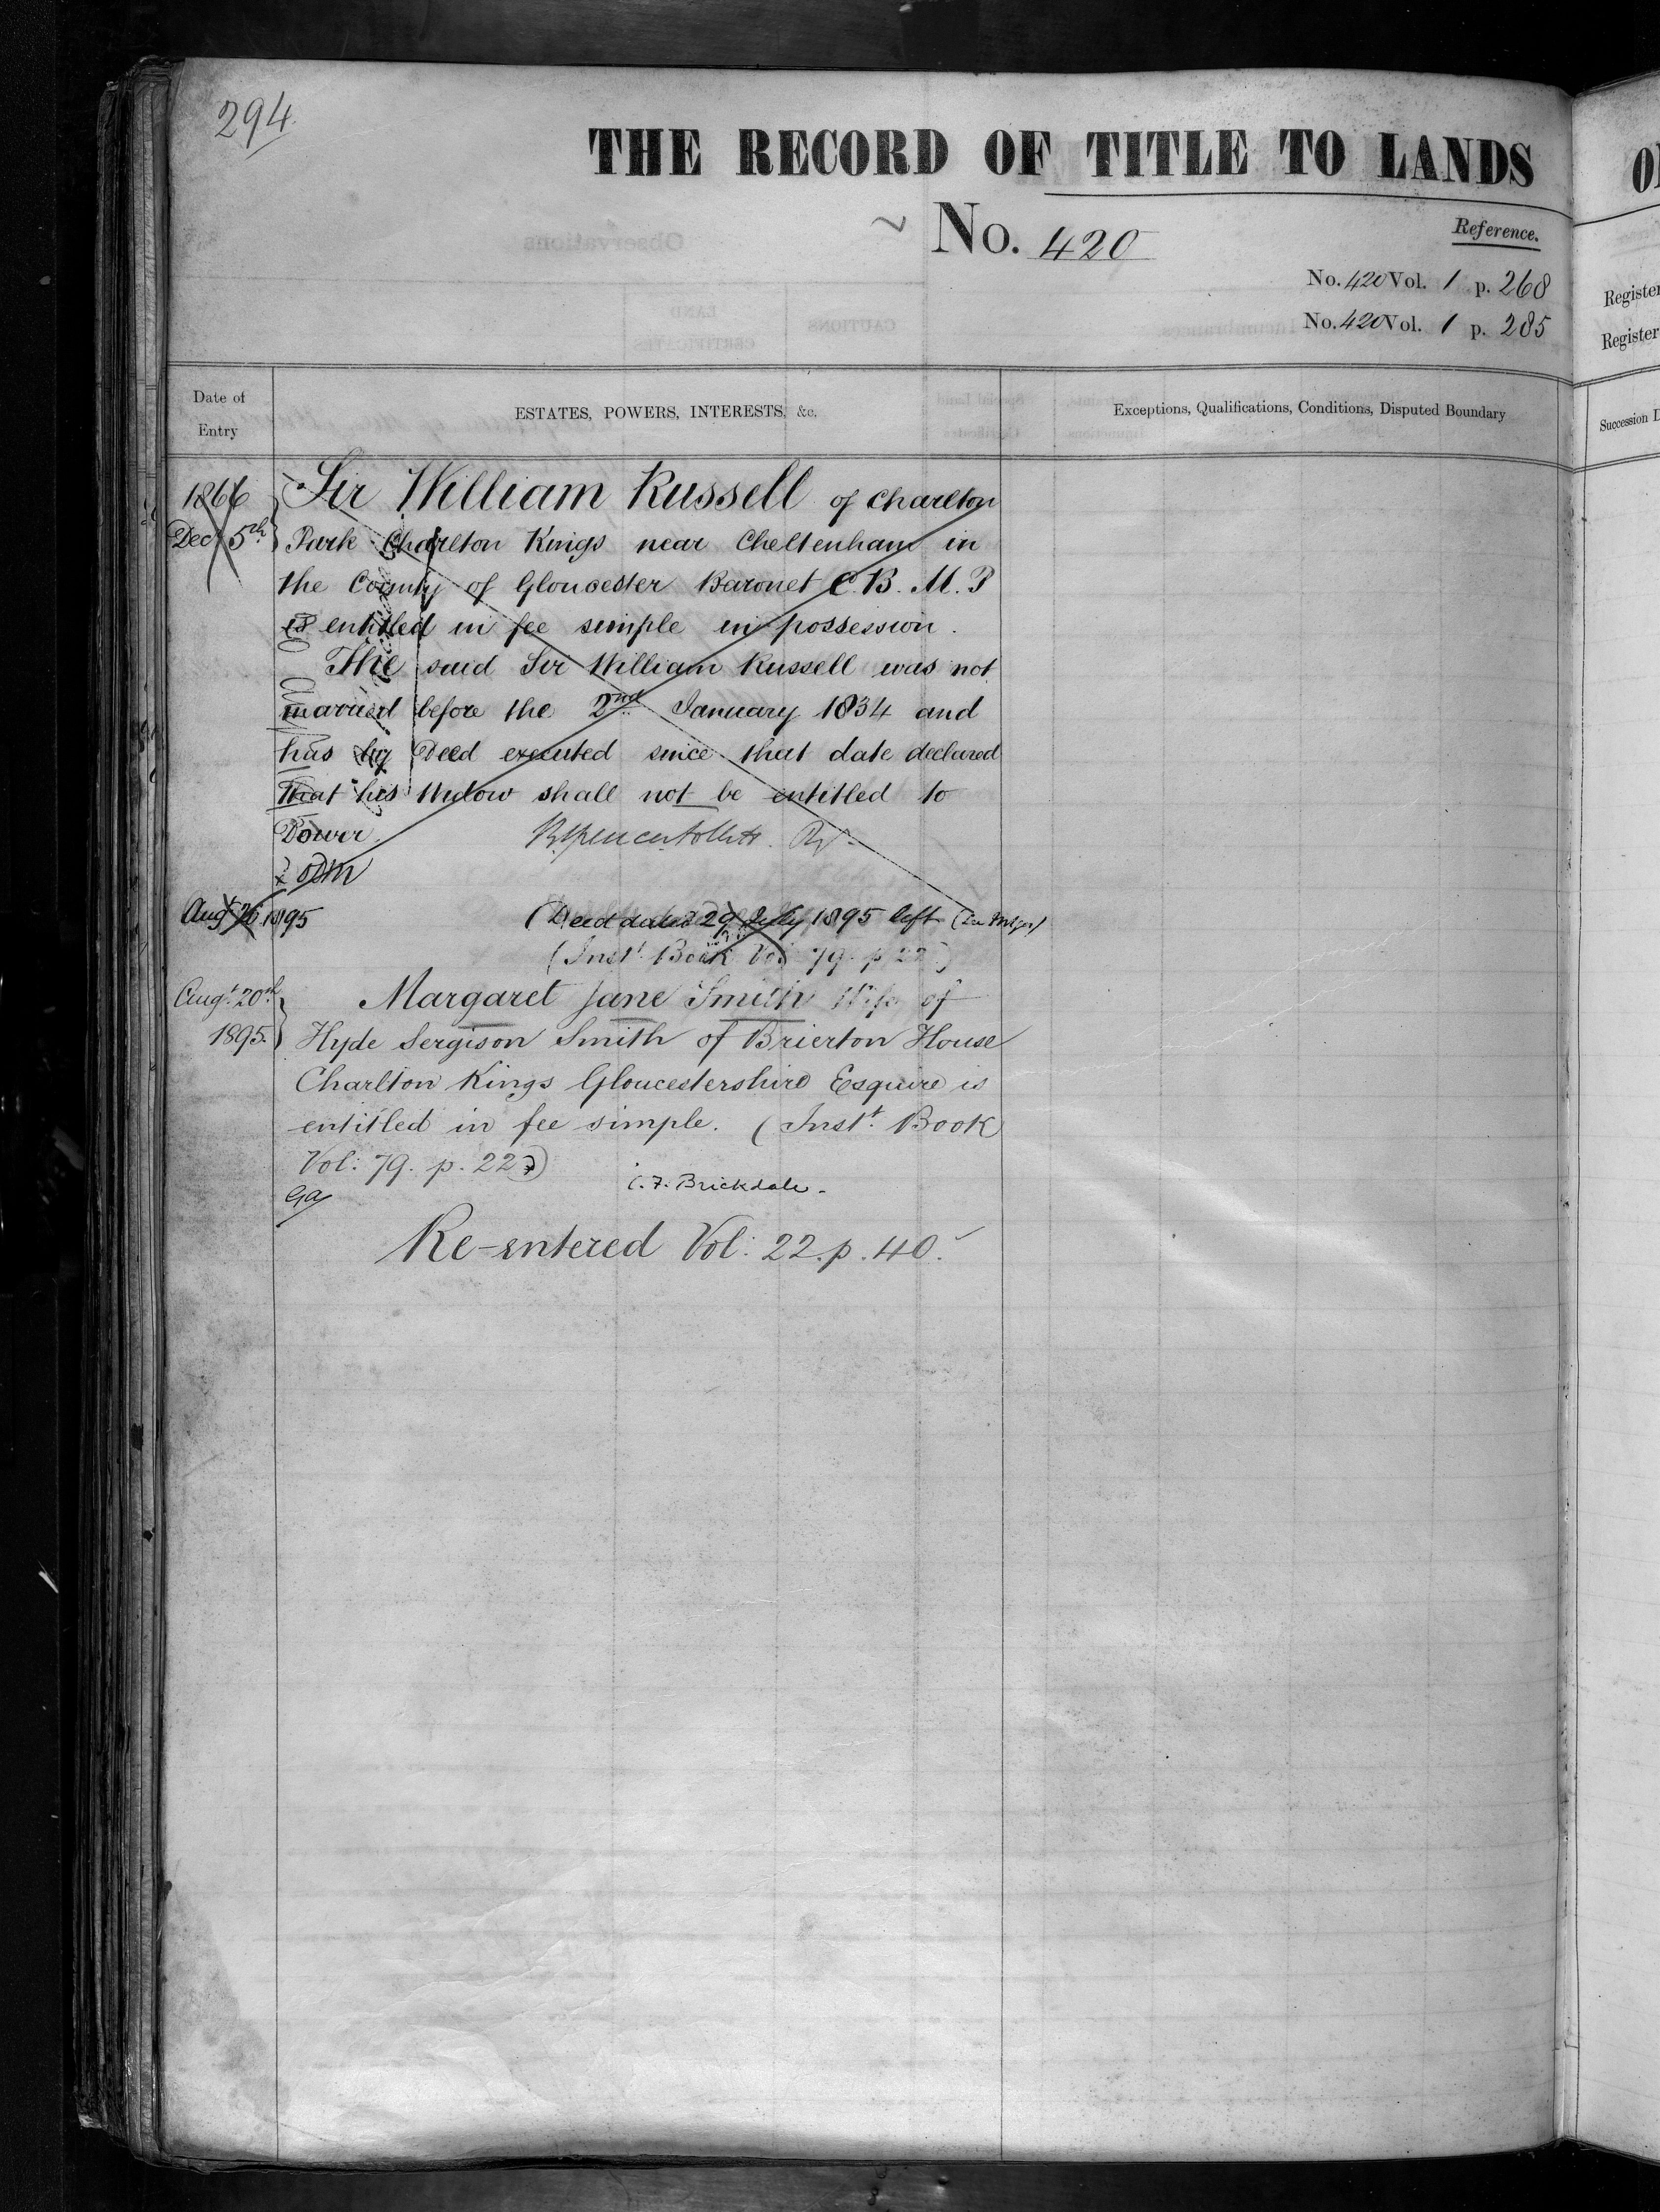 294.
THE RECORD OF TITLE TO LANDS
No. 420
Reference.
No. 420 Vol. 1 p. 268
No. 420 Vol. 1 p. 285
Register
Register
Date of
Entry
ESTATES, POWERS, INTERESTS, &c.
Exceptions, Qualifications, Conditions, Disputed Boundary
Succession D
1866
Dec 5th
Sir William Russell of Charlton
Park Charlton Kings near Cheltenham in
the County of Gloucester Baronet C.B. M.P
is entitled in fee simple in possession.
The said Sir William Russell was not
married before the 2nd January 1834 and
has by Deed executed since that date declared
that his Widow shall not be entitled to
Dower.
Aug 26 1895
(Deed dated 29 July 1895 left
(Inst. Book Vol 79. p 22
Augt. 20th
1895.
Margaret Jane Smith Wife of
Hyde Sergison Smith of Brierton House
Charlton Kings Gloucestershire Esquire is
entitled in fee simple. (Instt. Book
Vol: 79. p. 22
C. F. Brickdale.
Re-entered Vol: 22. p. 40.